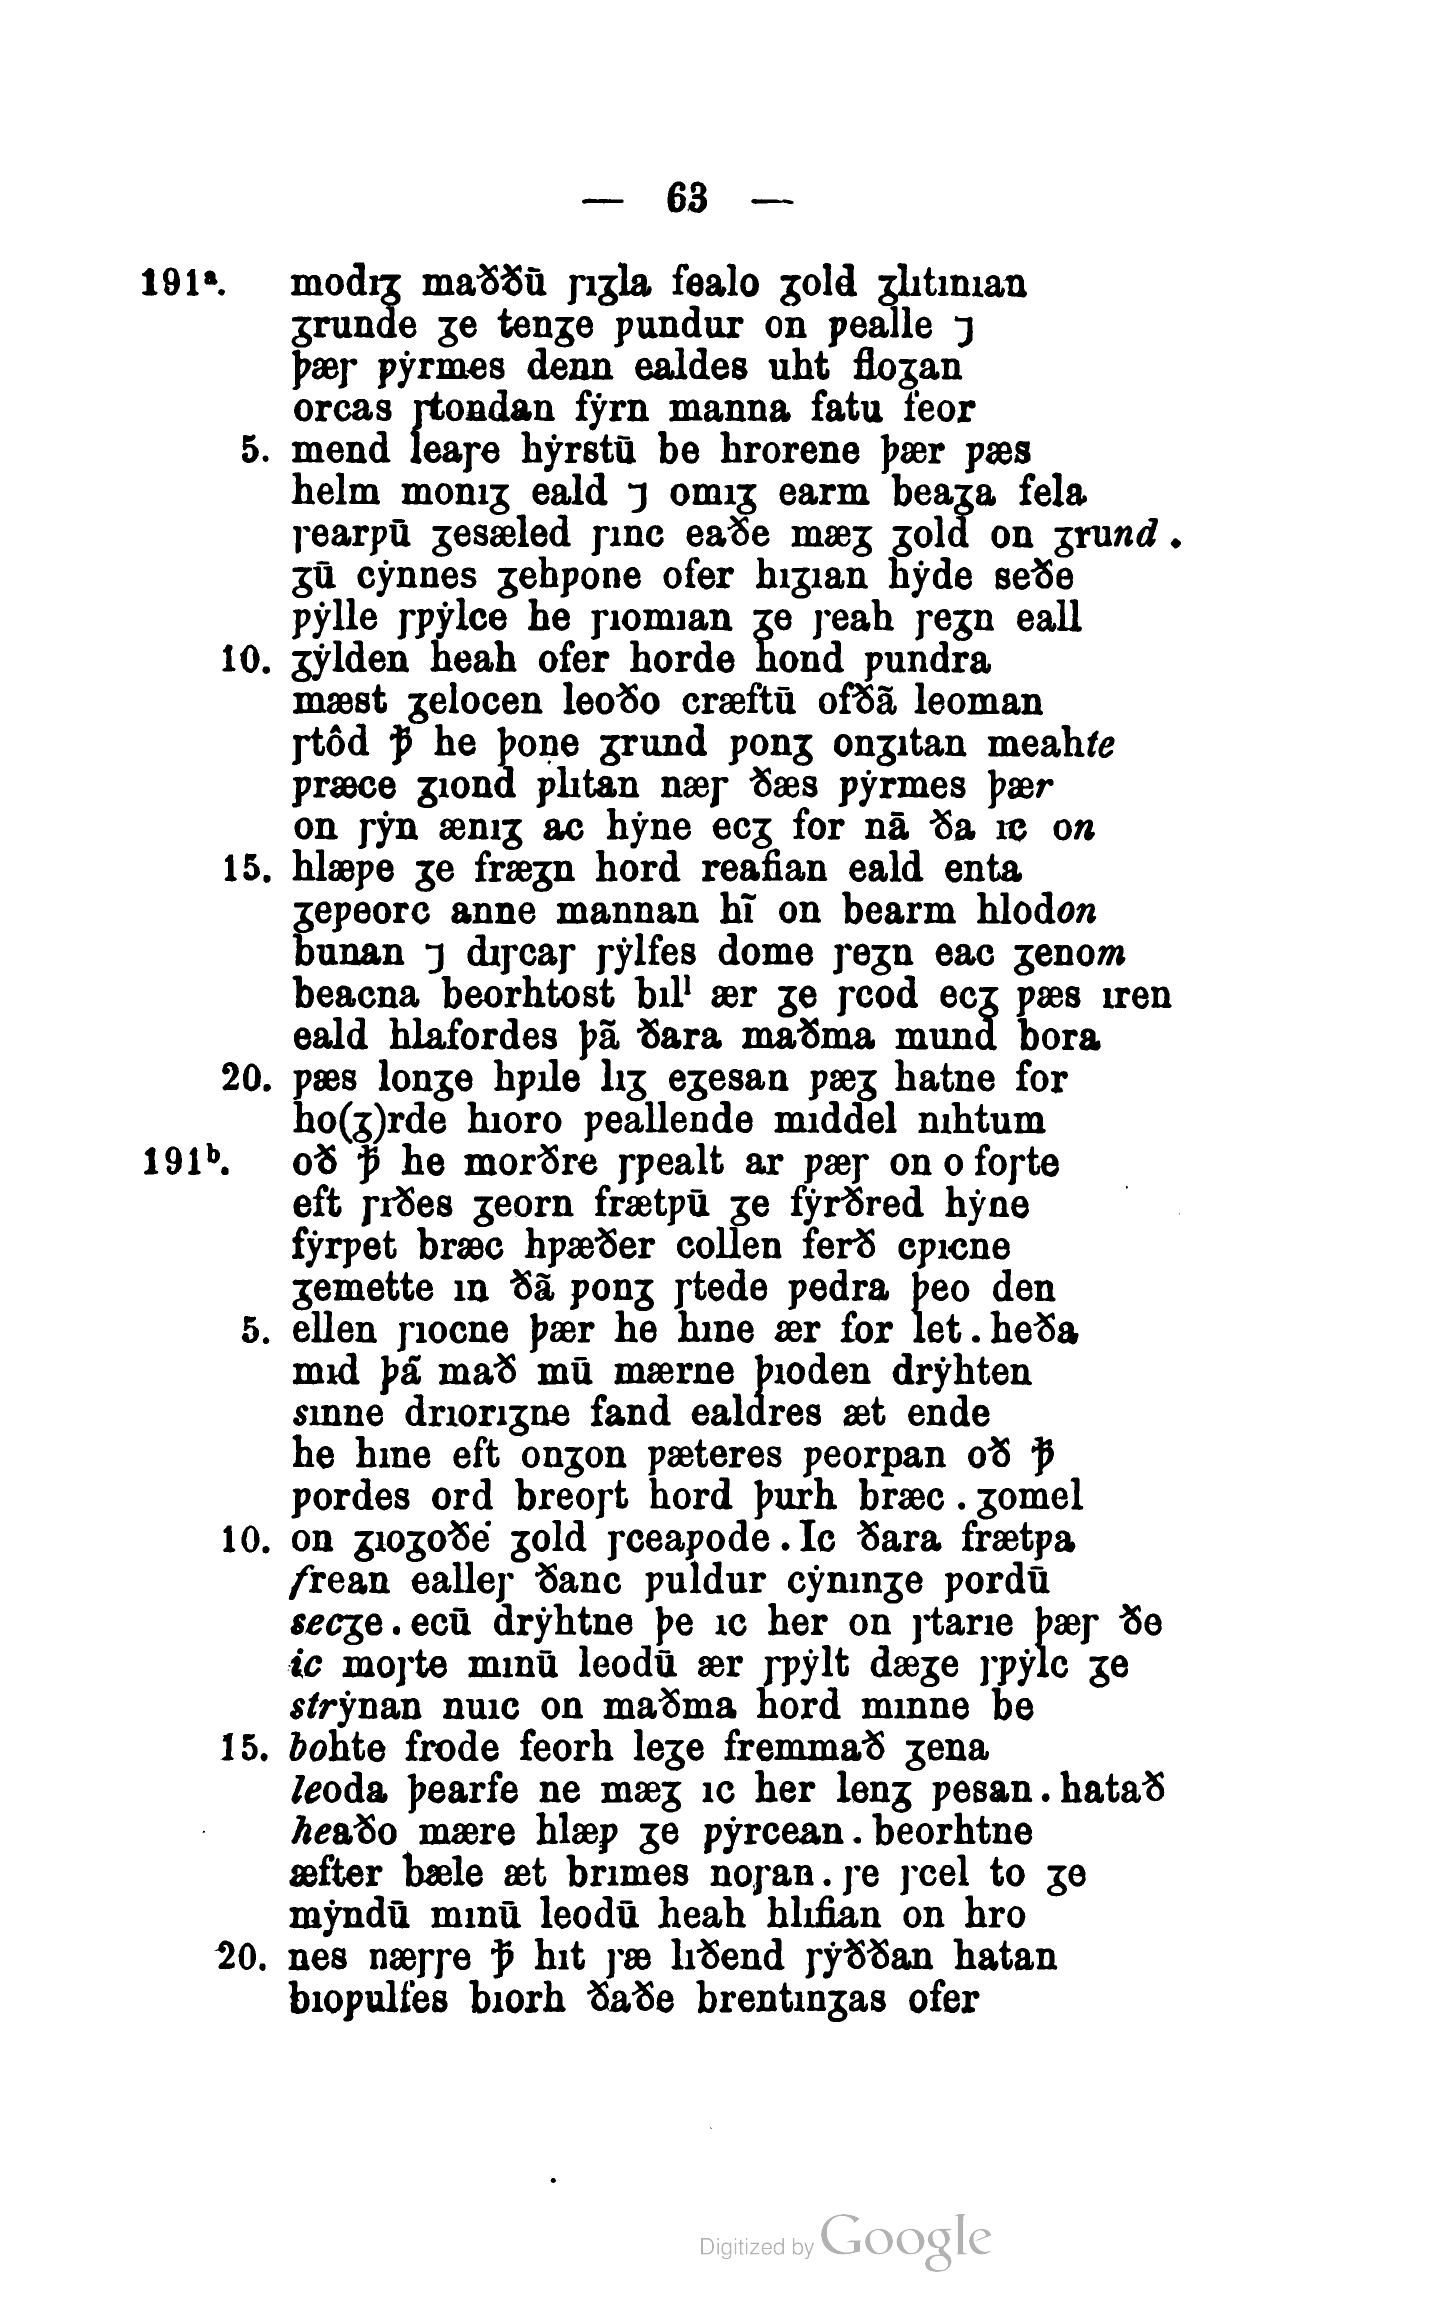 — 63 —
191ᵃ. modıᵹ maððū ꞅıᵹla fealo ᵹold ᵹlıtınıan
ᵹrunde ᵹe tenᵹe ƿundur on ƿealle ⁊
þæꞅ ƿẏrmes denn ealdes uht floᵹan
orcas ꞅtondan fẏrn manna fatu feor
5. mend leaꞅe hẏrstū be hrorene þær ƿæs
helm monıᵹ eald ⁊ omıᵹ earm beaᵹa fela
ꞅearƿū ᵹesæled ꞅınc eaðe mæᵹ ᵹold on ᵹrund .
ᵹū cẏnnes ᵹehƿone ofer hıᵹıan hẏde seðe
ƿẏlle ꞅƿẏlce he ꞅıomıan ᵹe ꞅeah ꞅeᵹn eall
10. ᵹẏlden heah ofer horde hond ƿundra
mæst ᵹelocen leoðo cræftū ofðã leoman
ꞅtôd ꝥ he þoṇe ᵹrund ƿonᵹ onᵹıtan meahte
ƿræce ᵹıond ƿlıtan næꞅ ðæs ƿẏrmes þær
on ꞅẏn ænıᵹ ac hẏne ecᵹ for nā ða ıc on
15. hlæƿe ᵹe fræᵹn hord reafian eald enta
ᵹeƿeorc anne mannan hı̃ on bearm hlodon
bunan ⁊ dıꞅcaꞅ ꞅẏlfes dome ꞅeᵹn eac ᵹenom
beacna beorhtost bılˡ ær ᵹe ꞅcod ecᵹ ƿæs ıren
eald hlafordes þã ðara maðma mund bora
20. ƿæs lonᵹe hƿıle lıᵹ eᵹesan ƿæᵹ hatne for
ho(ᵹ)rde hıoro ƿeallende mıddel nıhtum
191ᵇ. oð ꝥ he morðre ꞅƿealt ar ƿæꞅ on o foꞅte
eft ꞅıðes ᵹeorn frætƿū ᵹe fẏrðred hẏne
fẏrƿet bræc hƿæðer collen ferð cƿıcne
ᵹemette ın ðã ƿonᵹ ꞅtede ƿedra þeo den
5. ellen ꞅıocne þær he hıne ær for let . heða
mıd þã mað mū mærne þıoden drẏhten
sınne drıorıᵹne fand ealdres æt ende
he hıne eft onᵹon ƿæteres ƿeorpan oð ꝥ
ƿordes ord breoꞅt hord þurh bræc . ᵹomel
10. on ᵹıoᵹoðe ᵹold ꞅceaƿode . Ic ðara frætƿa
frean ealleꞅ ðanc ƿuldur cẏnınᵹe ƿordū
secᵹe . ecū drẏhtne þe ıc her on ꞅtarıe þæꞅ ðe
ic moꞅte mınū leodū ær ꞅƿẏlt dæᵹe ꞅƿẏlc ᵹe
strẏnan nuıc on maðma hord mınne be
15. bohte frode feorh leᵹe fremmað ᵹena
leoda þearfe ne mæᵹ ıc her lenᵹ ƿesan . hatað
heaðo mære hlæƿ ᵹe ƿẏrcean . beorhtne
æfter bæle æt brımes noꞅan . ꞅe ꞅcel to ᵹe
mẏndū mınū leodū heah hlıfian on hro
20. nes næꞅꞅe ꝥ hıt ꞅæ lıðend ꞅẏððan hatan
bıoƿulfes bıorh ðaðe brentınᵹas ofer
Digitized by Google